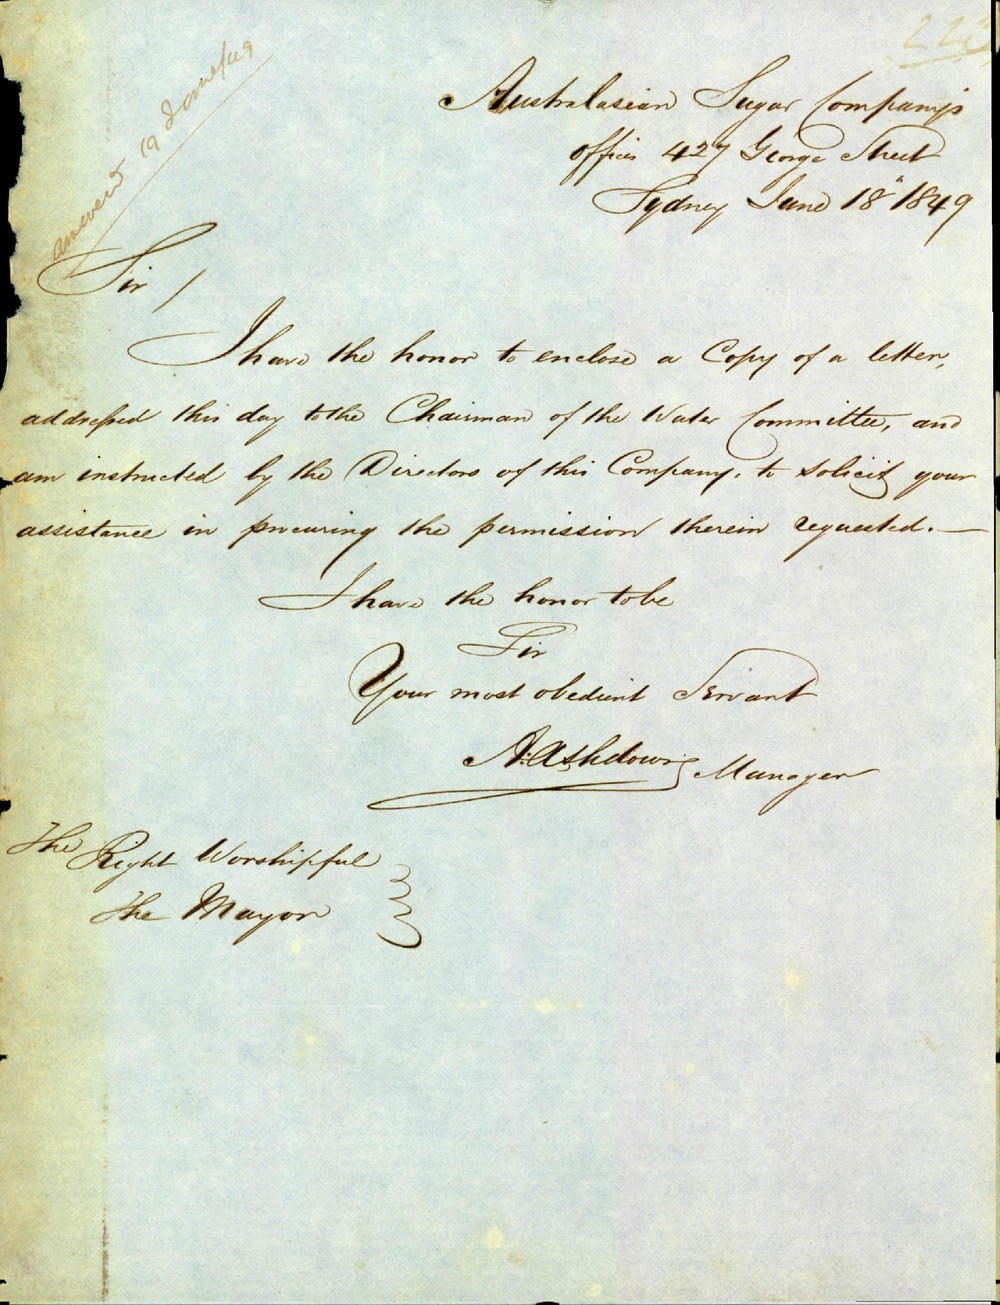 223
answered 19 June /49
Australasian Sugar Company's
offices 427 George Street
Sydney June 18th 1849
Sir /
I have the honor to enclose a Copy of a letter,
addressed this day to the Chairman of the Water Committee, and
am instructed by the Directors of this Company, to solicit your
assistance in procuring the permission therein requested. —
I have the honor to be
Sir
Your most obedient Servant
A: Ashdown Manager
The Right Worshipful
The Mayor